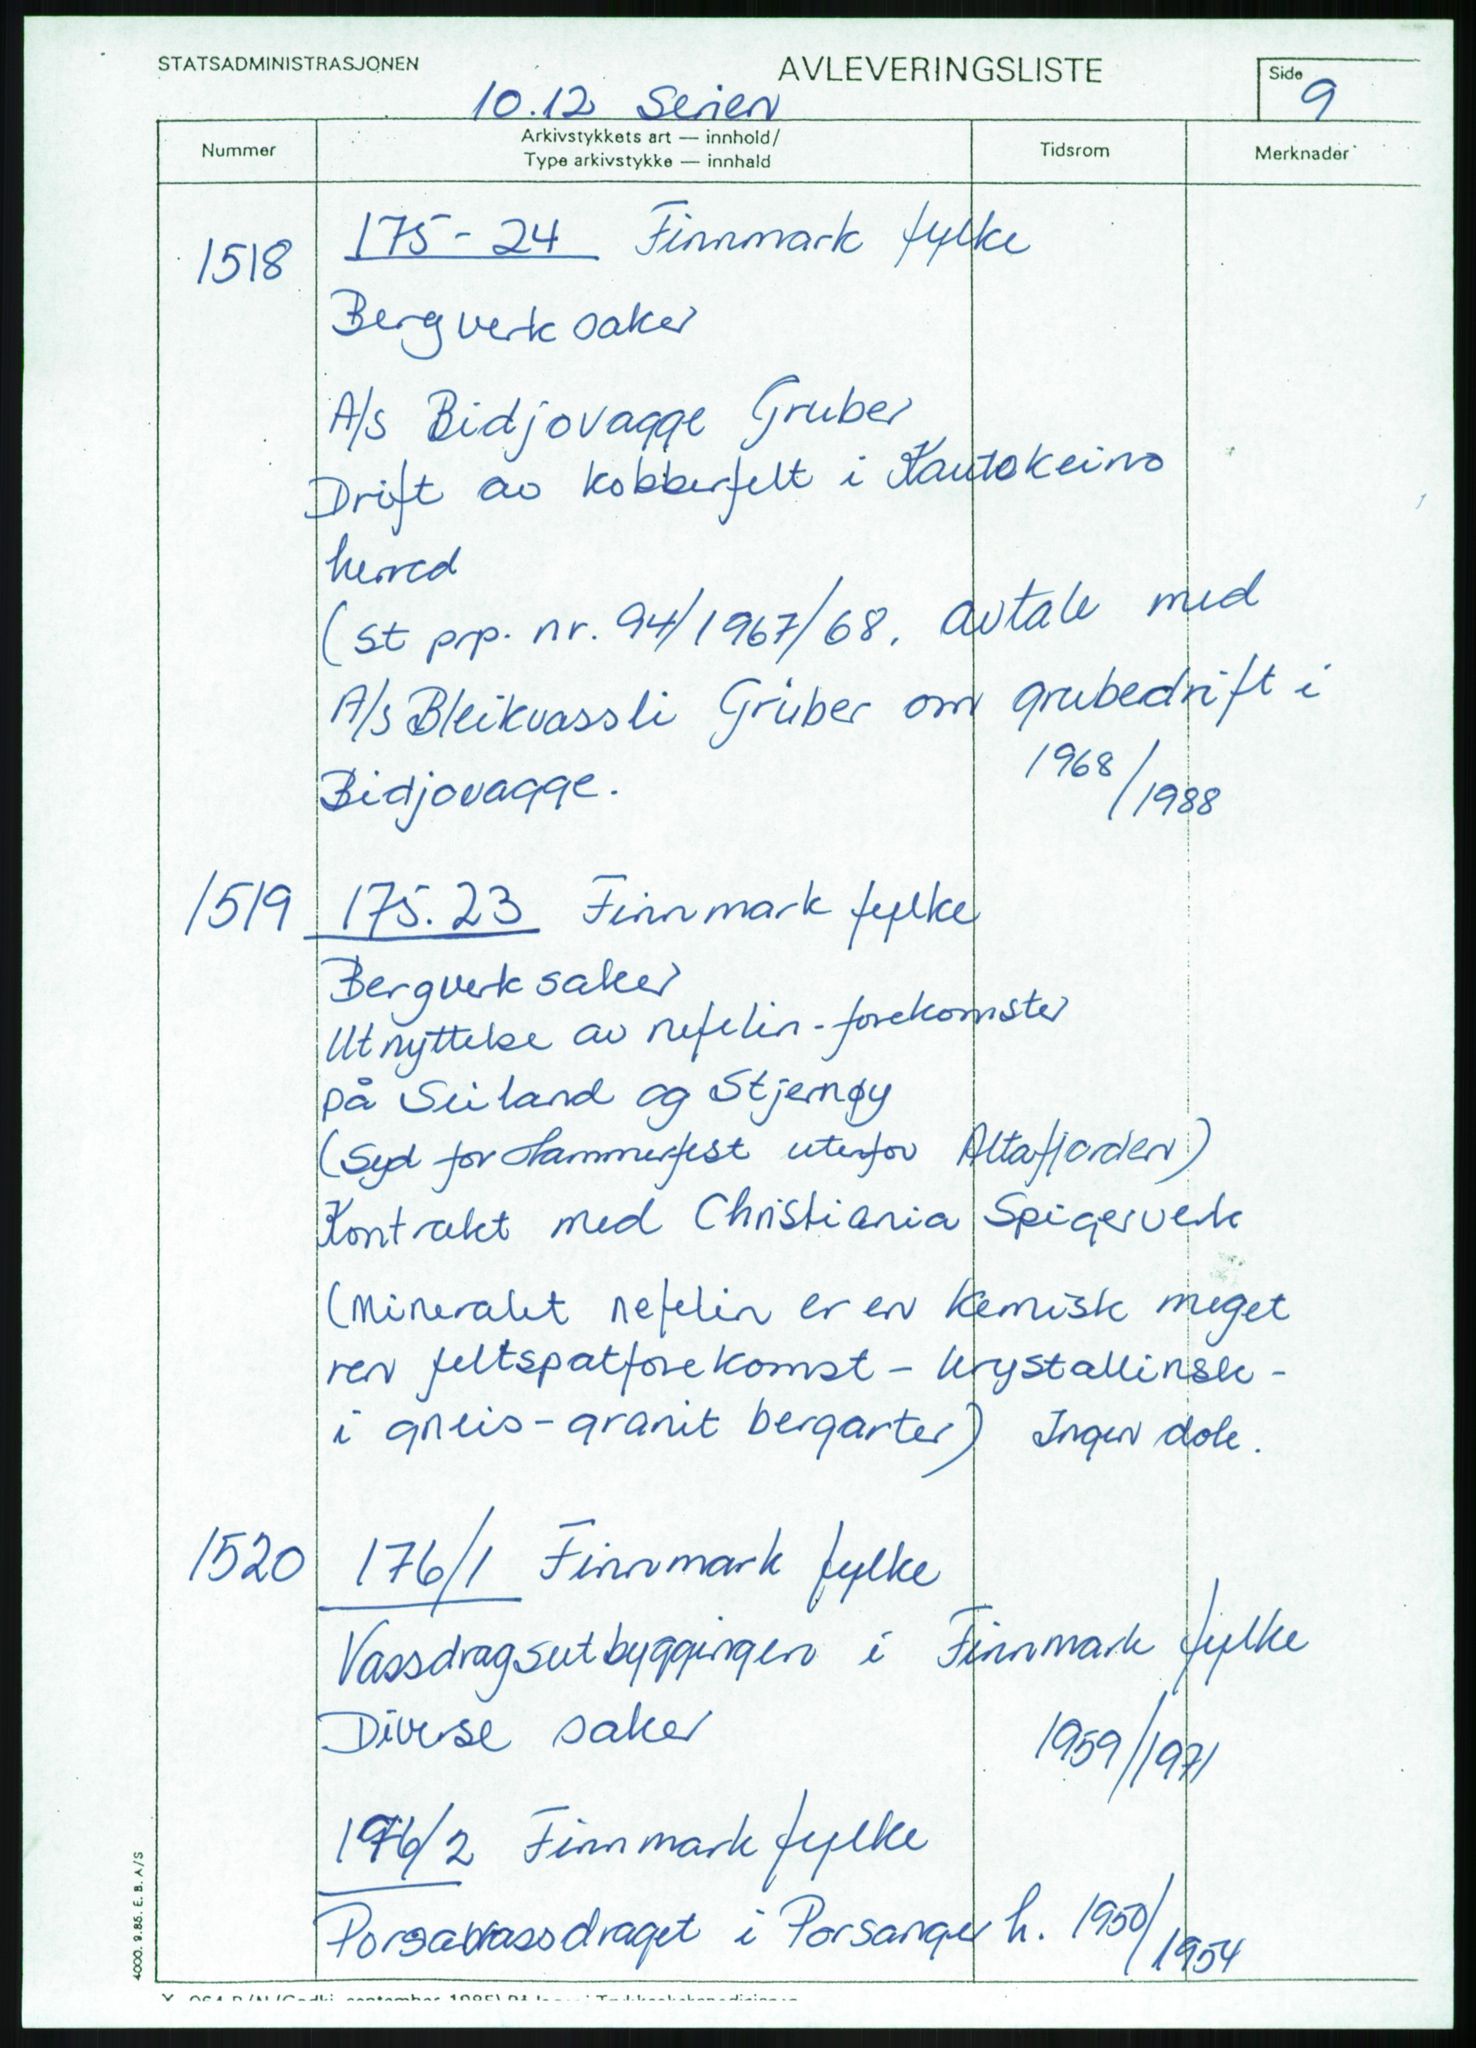 STATSADMINISTRASJONEN
AVLEVERINGSLISTE
Side
9
10.12 Serien
Nummer
Arkivstykkets art — innhold/
Type arkivstykke — innhald
Tidsrom
Merknader
1518
175-24 Finnmark fylke
Bergverksaker
A/s Bidjovagge Gruber
Drift av kobberfelt i Kautokeino
herred
(st prp. nr. 94/1967/68. avtale med
A/s Bleikvassli Gruber om grubedrift i
Bidjovagge.
1968/1988
1519 175.23 Finnmark fylke
Bergverksaker
Utnyttelse av nefelin-forekomster
på Seiland og Stjernøy
(Syd for Hammerfest utenfor Altafjorden)
Kontrakt med Christiania Spigerverk
(Mineralet nefelin er en kemisk meget
ren feltspatforekomst - krystallinsk -
i gneis-granit bergarter) Ingen dok.
1520 176/1 Finnmark fylke
Vassdragsutbyggingen i Finnmark fylke
Diverse saker 1959/1971
176/2 Finnmark fylke
Porsavassdraget i Porsanger h. 1950/1954
4000. 9.85. E. B. A/S